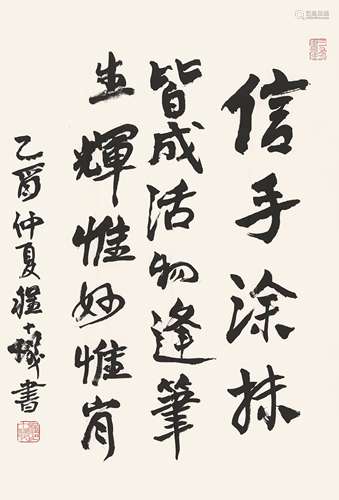 信手涂抹
皆成活物逢筆
生輝惟妙惟肖
乙酉仲夏程十髮書